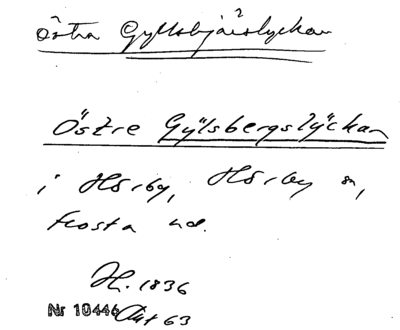 östra Gyllsbjärslyckan
Östre Gylsbergslÿckan
i Hörby, Hörby sn,
Frosta hd.
H. 1836
Nr 10446 Akt 63